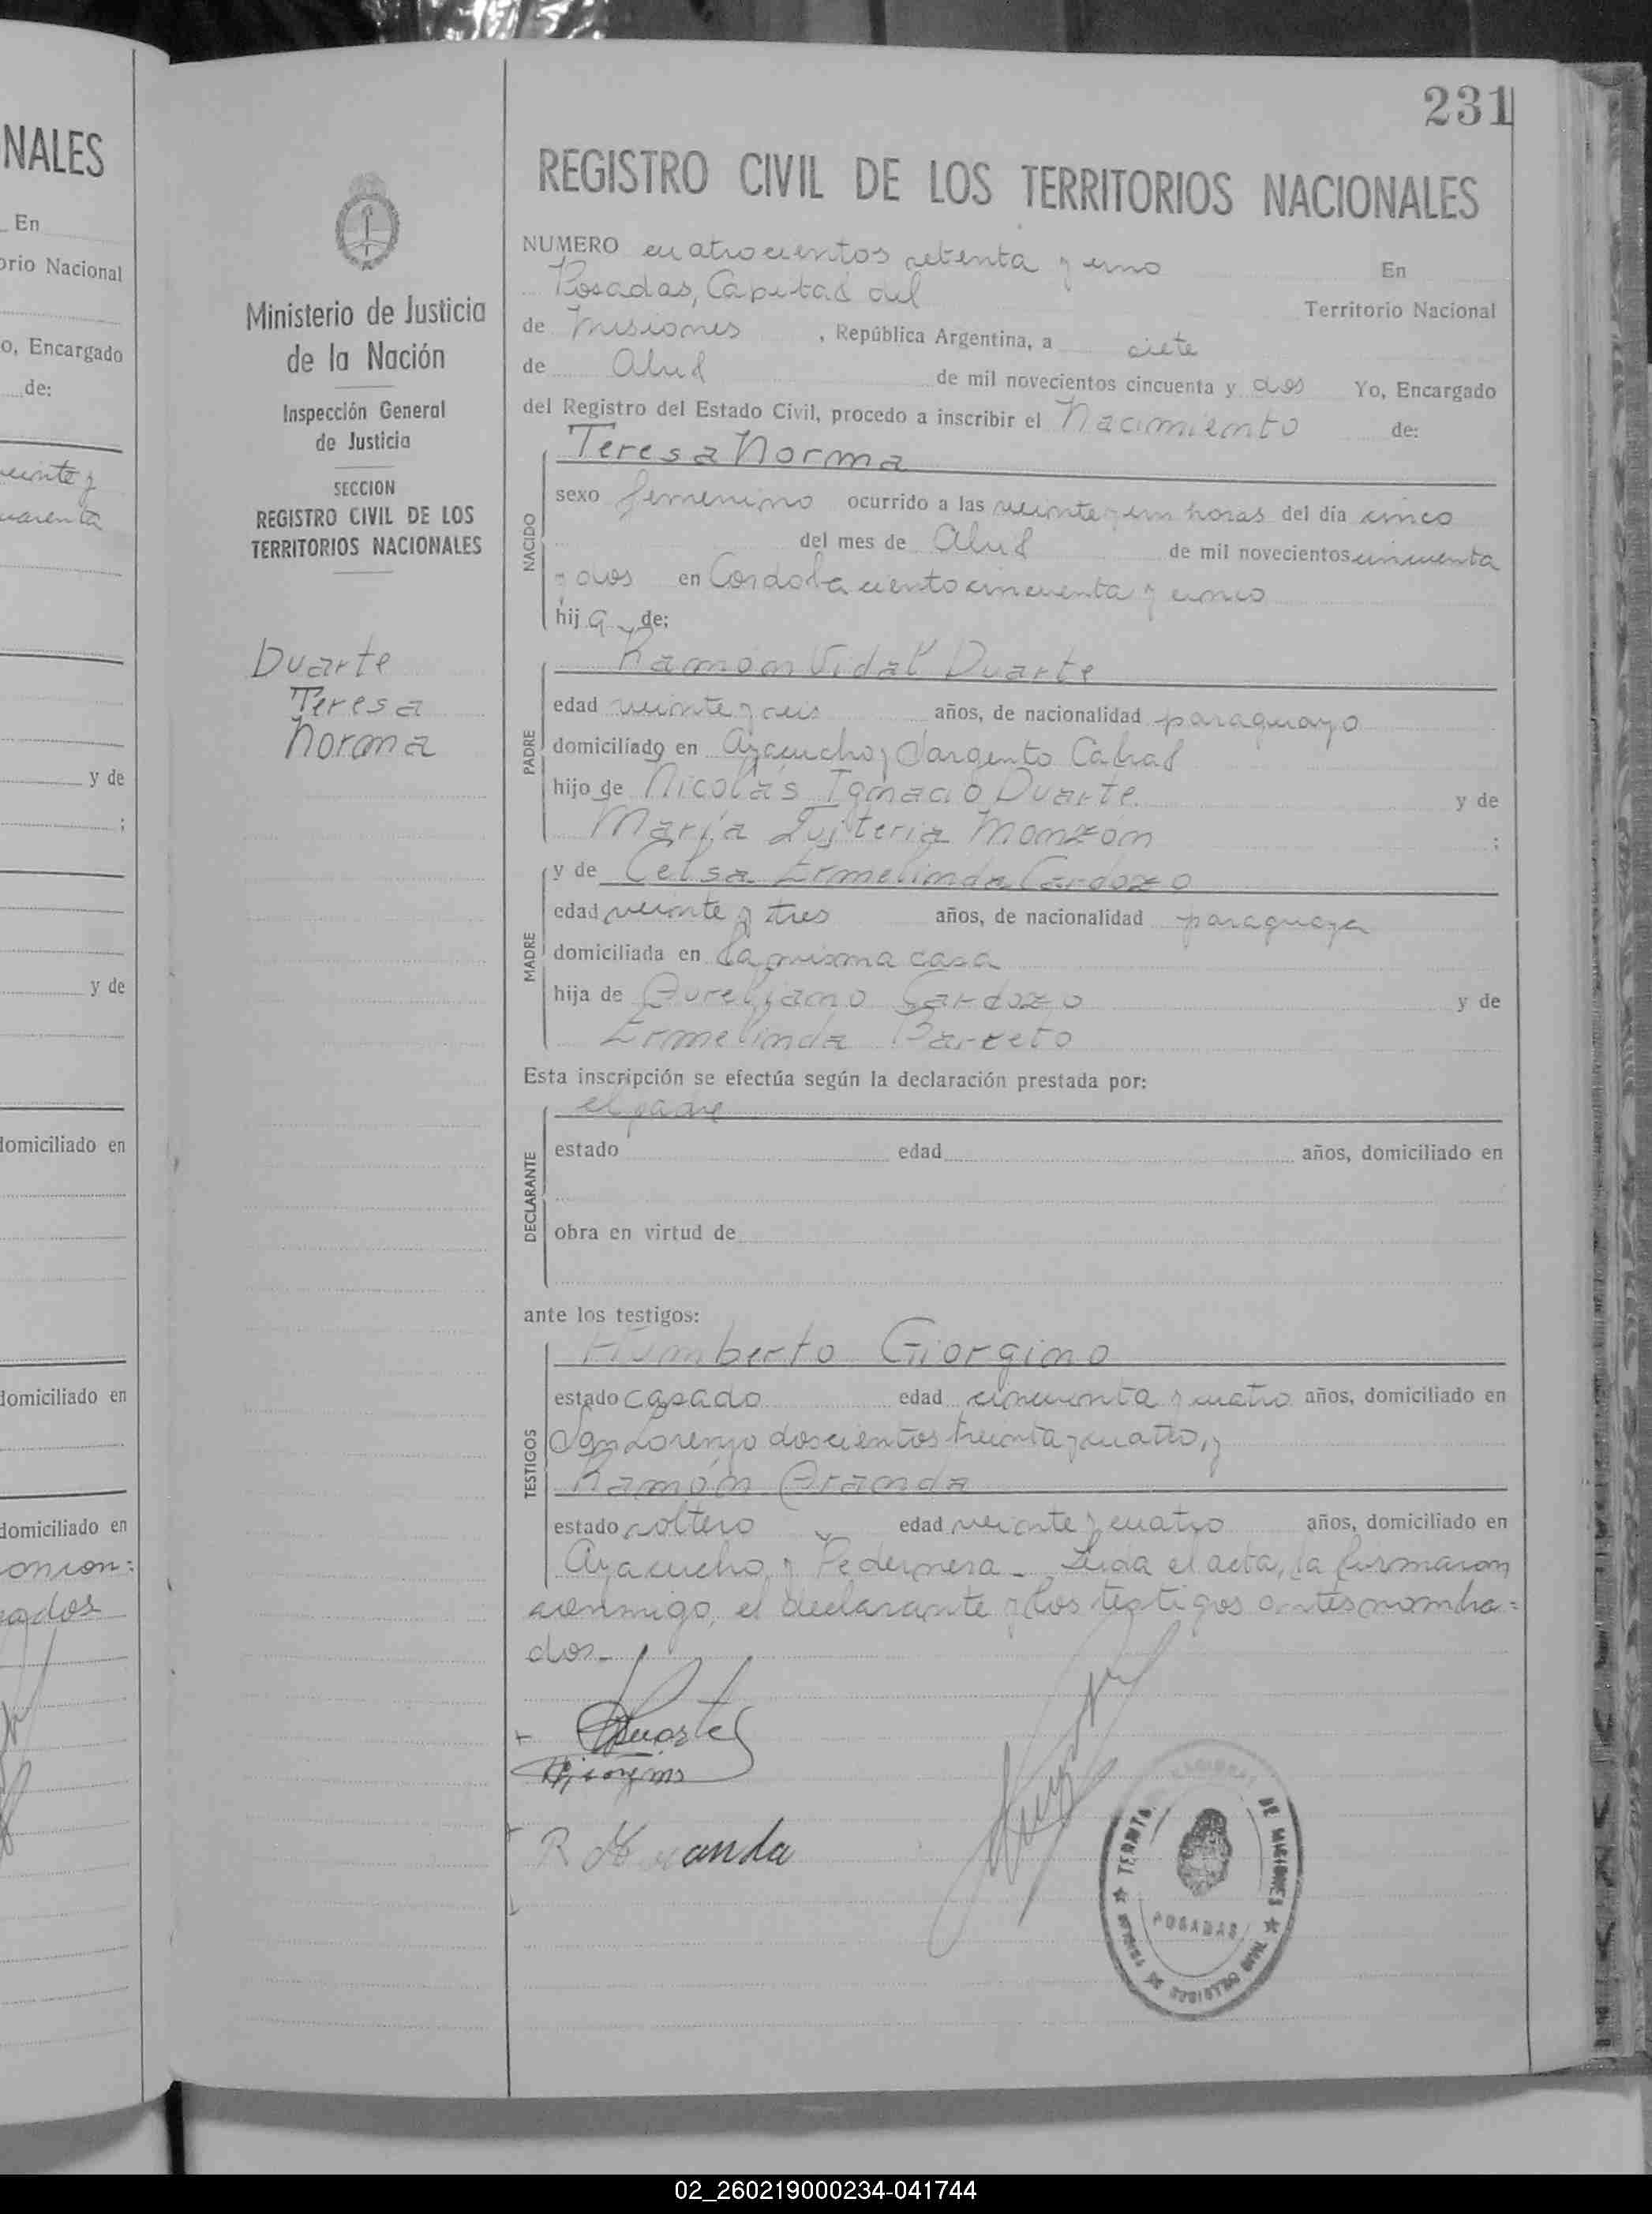 NALES
En
orio Nacional
o, Encargado
de:
veinte y
cuarenta
y de
;
y de
domiciliado en
domiciliado en
domiciliado en
conmi=
rados
Ministerio de Justicia
de la Nación
Inspección General
de Justicia
SECCION
REGISTRO CIVIL DE LOS
TERRITORIOS NACIONALES
Duarte
Teresa
Norma
231
REGISTRO CIVIL DE LOS TERRITORIOS NACIONALES
NUMERO cuatrocientos setenta y uno En
Posadas, Capital del Territorio Nacional
de Misiones, República Argentina, a siete
de Abril de mil novecientos cincuenta y dos Yo, Encargado
del Registro del Estado Civil, procedo a inscribir el Nacimiento de:
Teresa Norma
NACIDO
sexo femenino ocurrido a las veinte y un horas del día cinco
del mes de Abril de mil novecientos cincuenta
y dos en Cordoba ciento cincuenta y cinco
hija de;
Ramón Vidal Duarte
PADRE
edad veinte y seis años, de nacionalidad paraguayo
domiciliado en Ayacucho y Sargento Cabral
hijo de Nicolás Ignacio Duarte y de
María Quiteria Monzón ;
MADRE
y de Celsa Ermelinda Cardozo
edad veinte y tres años, de nacionalidad paraguaya
domiciliada en la misma casa
hija de Aureliano Cardozo y de
Ermelinda Barreto
Esta inscripción se efectúa según la declaración prestada por:
el padre
DECLARANTE
estado edad años, domiciliado en
obra en virtud de
ante los testigos:
Humberto Giorgino
TESTIGOS
estado casado edad cincuenta y cuatro años, domiciliado en
San Lorenzo doscientos treinta y cuatro, y
Ramón Aranda
estado soltero edad veinte y cuatro años, domiciliado en
Ayacucho y Pedernera - Leida el acta, la firmaron
conmigo, el declarante y los testigos antes nombra=
dos-
Duarte
Giorgino
R Aranda
TERRITO NACIONAL DE MISIONES
POSADAS
02_260219000234-041744